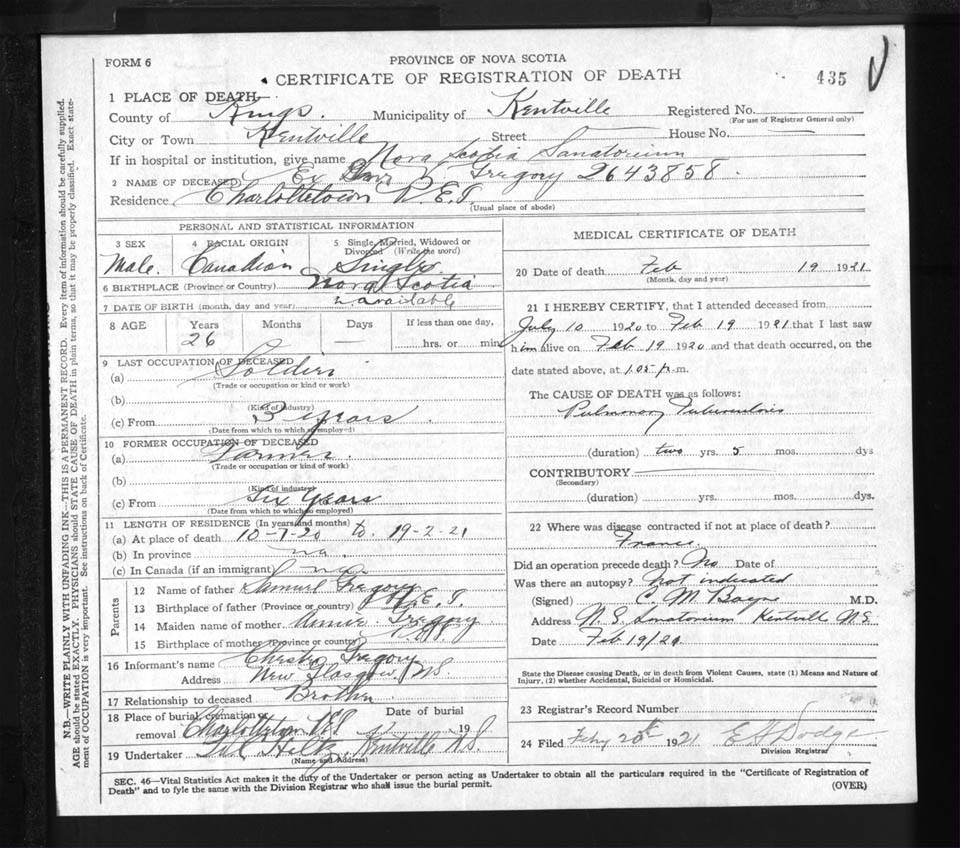 FORM 6
PROVINCE OF NOVA SCOTIA
CERTIFICATE OF REGISTRATION OF DEATH
435
1 PLACE OF DEATH—
County of Kings Municipality of Kentville Registered No.
(For use of Registrar General only)
City or Town Kentville Street House No.
If in hospital or institution, give name Nova Scotia Sanatorium
2 NAME OF DECEASED Ex Gregory 2643858.
Residence Charlottetown P.E.I.
(Usual place of abode)
PERSONAL AND STATISTICAL INFORMATION
3 SEX 4 RACIAL ORIGIN 5 Single, Married, Widowed or Divorced (Write the word)
Male. Canadian Single
6 BIRTHPLACE (Province or Country) Nova Scotia
7 DATE OF BIRTH (month, day and year) unavailable
8 AGE Years Months Days If less than one day,
26 — — hrs. or min
9 LAST OCCUPATION OF DECEASED
(a) Soldier
(Trade or occupation or kind or work)
(b)
(Kind of industry)
(c) From 3 years
(Date from which to which so employed)
10 FORMER OCCUPATION OF DECEASED
(a) Farmer.
(Trade or occupation or kind of work)
(b)
(Kind of industry)
(c) From Six Years
(Date from which to which so employed)
11 LENGTH OF RESIDENCE (In years and months)
(a) At place of death 10-7-20 to 19-2-21
(b) In province na.
(c) In Canada (if an immigrant) na
Parents
12 Name of father Samuel Gregory
13 Birthplace of father (Province or country) P.E.I.
14 Maiden name of mother Gregory
15 Birthplace of mother (Province or country)
16 Informant's name Chester Gregory
Address New Glasgow, NS.
17 Relationship to deceased Brother
18 Place of burial, cremation or removal Charlottetown PEI Date of burial 19
19 Undertaker Kentville N.S.
(Name and Address)
MEDICAL CERTIFICATE OF DEATH
20 Date of death Feb 19 1921
(Month, day and year)
21 I HEREBY CERTIFY, that I attended deceased from
July 10 1920 to Feb 19 1921 that I last saw
him alive on Feb 19 1920 and that death occurred, on the
date stated above, at 1.05 p.m.
The CAUSE OF DEATH was as follows:
Pulmonary Tuberculosis
(duration) two yrs. 5 mos. dys
CONTRIBUTORY
(Secondary)
(duration) yrs. mos. dys.
22 Where was disease contracted if not at place of death?
France.
Did an operation precede death? No Date of
Was there an autopsy? Not indicated
(Signed) C M M.D.
Address N.S. Sanatorium Kentville N.S.
Date Feb 19/21
State the Disease causing Death, or in death from Violent Causes, state (1) Means and Nature of
Injury, (2) whether Accidental, Suicidal or Homicidal.
23 Registrar's Record Number
24 Filed Feby 20th 1921 E H Dodge
Division Registrar
SEC. 46—Vital Statistics Act makes it the duty of the Undertaker or person acting as Undertaker to obtain all the particulars required in the "Certificate of Registration of
Death" and to fyle the same with the Division Registrar who shall issue the burial permit.
(OVER)
N.B.—WRITE PLAINLY WITH UNFADING INK—THIS IS A PERMANENT RECORD. Every item of information should be carefully supplied.
AGE should be stated EXACTLY. PHYSICIANS should STATE CAUSE OF DEATH in plain terms, so that it may be properly classified. Exact statement of OCCUPATION is very important. See instructions on back of Certificate.